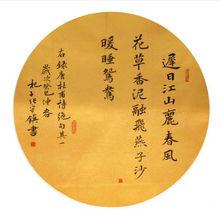 遲日江山麗春風
花草香泥融飛燕子沙
暖睡鴛鴦
右錄唐杜甫詩絕句其一
歲次癸巳仲春
書